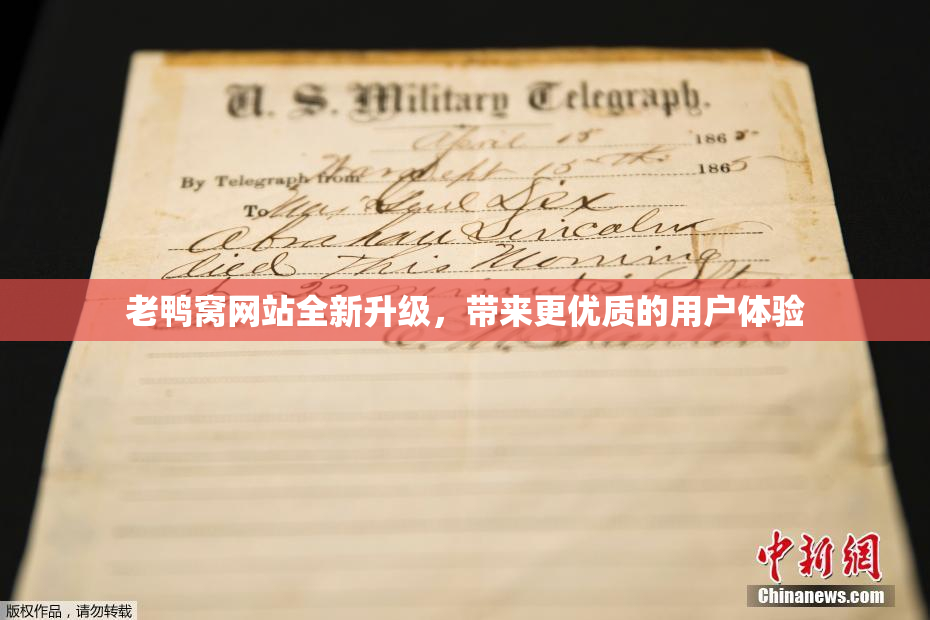 U. S. Military Telegraph.
April 15 1865
By Telegraph from War Dept 15th 1865
To Maj Genl Dix
Abraham Lincoln
died This Morning
at 22 minutes after
老鸭窝网站全新升级，带来更优质的用户体验
E. M. Stanton
中新网
Chinanews.com
版权作品，请勿转载